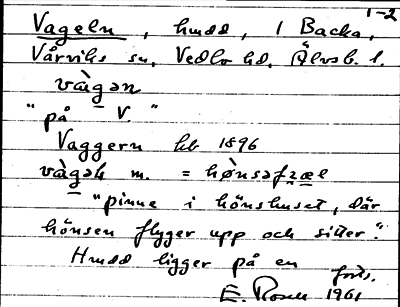 1-2
Vageln, hmdd, 1 Backa,
Vårviks sn, Vedbo hd, Älvsb. l.
vàgən
"på V."
Vaggern hb 1896
m. = 
"pinne i hönshuset, där
hönsen flyger upp och sitter."
Hmdd ligger på en
forts.
E. Rosell 1961